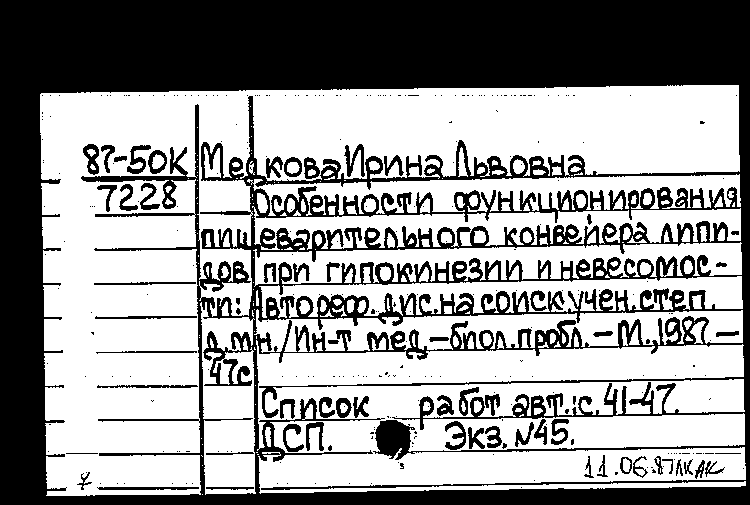 87-50К Медкова, Ирина Львовна.
7228 Особенности функционирования
пищеварительного конвейера липи-
дов при гипокинезии и невесомос-
ти: Автореф. дис. на соиск. учен. степ.
д.м.н./Ин-т мед.-биол. пробл. - М., 1987. -
47с
Список работ авт.: с. 41-47.
ДСП. Экз. №45.
11.06.87